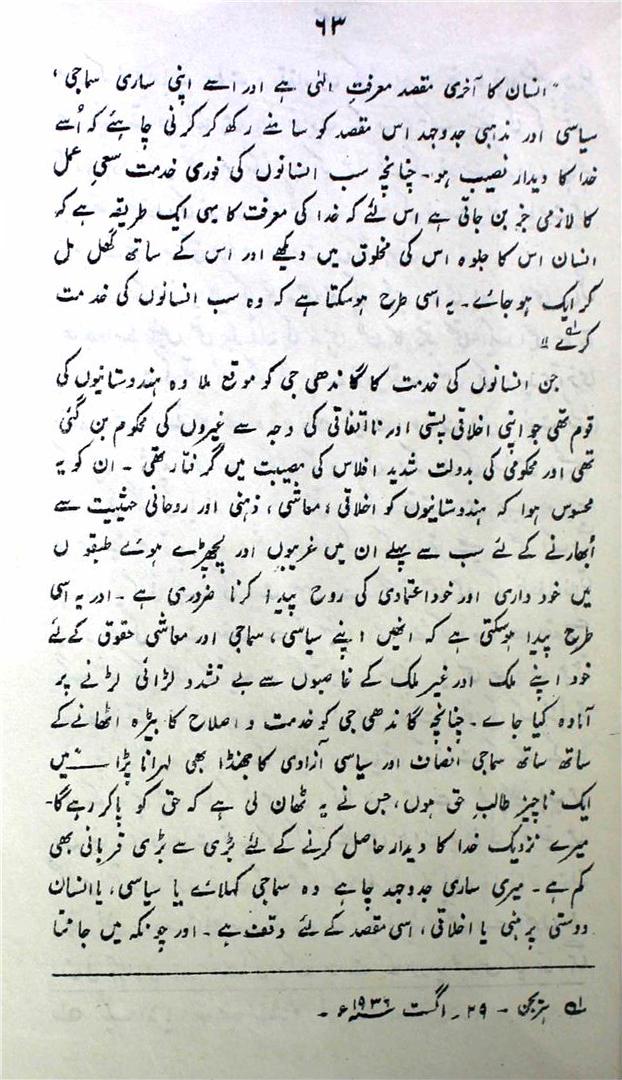 ۶۳
"انسان کا آخری مقصد معرفتِ الٰہی ہے اور اسے اپنی ساری سماجی،
سیاسی اور مذہبی جدوجہد اس مقصد کو سامنے رکھ کر کرنی چاہئے کہ اُسے
خدا کا دیدار نصیب ہو۔ چنانچہ سب انسانوں کی فوری خدمت سعیِ عمل
کا لازمی جز بن جاتی ہے اس لئے کہ خدا کی معرفت کا یہی ایک طریقہ ہے کہ
انسان اس کا جلوہ اس کی مخلوق میں دیکھے اور اس کے ساتھ گھل مل
کر ایک ہو جائے۔ یہ اسی طرح ہو سکتا ہے کہ وہ سب انسانوں کی خدمت
کرے۔"؂۱
جن انسانوں کی خدمت کا گاندھی جی کو موقع ملا وہ ہندوستانیوں کی
قوم تھی جو اپنی اخلاقی پستی اور نااتفاقی کی وجہ سے غیروں کی محکوم بن گئی
تھی اور محکومی کی بدولت شدید افلاس کی مصیبت میں گرفتار تھی۔ ان کو یہ
محسوس ہوا کہ ہندوستانیوں کو اخلاقی، معاشی، ذہنی اور روحانی حیثیت سے
اُبھارنے کے لئے سب سے پہلے ان میں غریبوں اور پچھڑے ہوئے طبقوں
میں خود داری اور خود اعتمادی کی روح پیدا کرنا ضروری ہے۔ اور یہ اسی
طرح پیدا ہو سکتی ہے کہ انھیں اپنے سیاسی، سماجی اور معاشی حقوق کے لئے
خود اپنے ملک اور غیر ملک کے غاصبوں سے بے تشدد لڑائی لڑنے پر
آمادہ کیا جاے۔ چنانچہ گاندھی جی کو خدمت و اصلاح کا بیڑہ اٹھانے کے
ساتھ ساتھ سماجی انصاف اور سیاسی آزادی کا جھنڈا بھی لہرانا پڑا ـــــ میں
ایک ناچیز طالبِ حق ہوں، جس نے یہ ٹھان لی ہے کہ حق کو پا کر رہے گا۔
میرے نزدیک خدا کا دیدار حاصل کرنے کے لئے بڑی سے بڑی قربانی بھی
کم ہے۔ میری ساری جدوجہد چاہے وہ سماجی کہلائے یا سیاسی، یا انسان
دوستی پر مبنی یا اخلاقی، اسی مقصد کے لئے وقف ہے۔ اور چونکہ میں جانتا
؂۱ ہریجن - ۲۹۔ اگست ۱۹۳۶ء۔